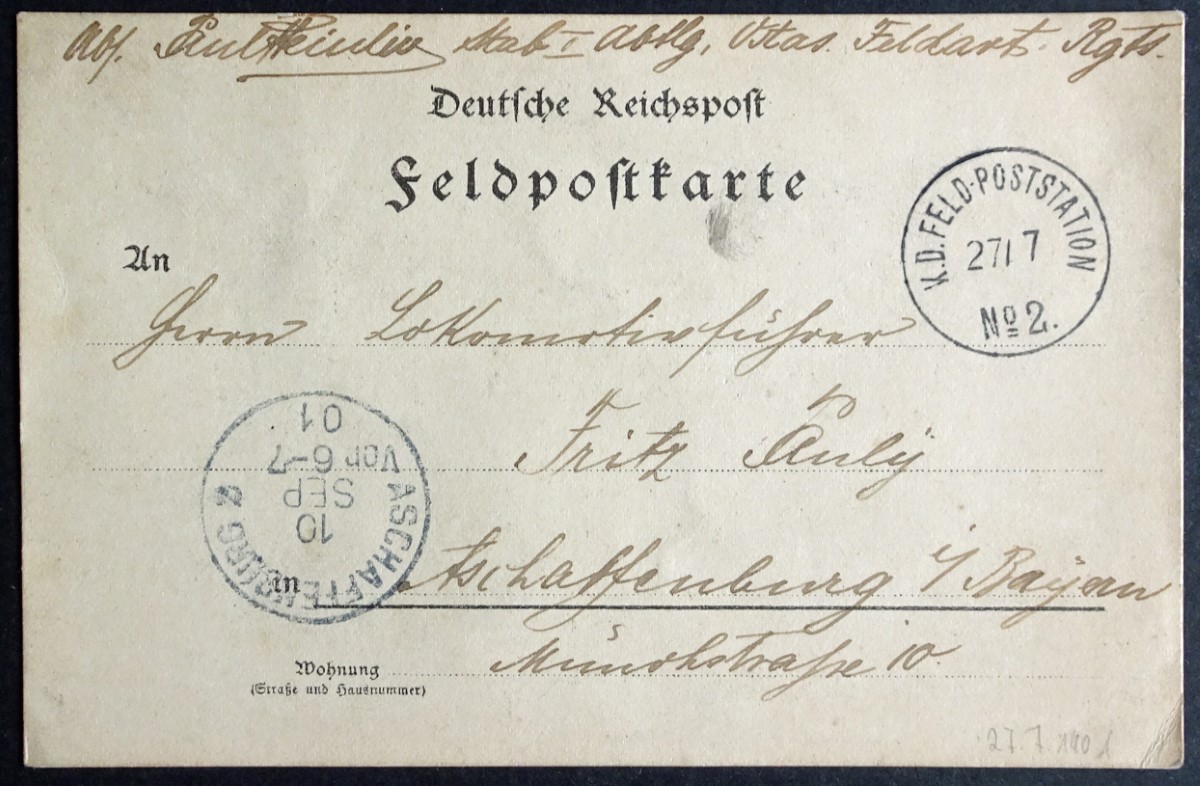 Abs. Paul Heinlin Stab I Abtlg. Ostas. Feldart. Rgts.
Deutsche Reichspost
Feldpostkarte
K.D. FELD-POSTSTATION
27/7
No 2.
An
Herrn Lokomotivführer
Fritz Pauly
ASCHAFFENBURG 2
10
SEP
Vor 6-7
01
in Aschaffenburg i/ Bayern
Münchstraße 10.
Wohnung
(Straße und Hausnummer)
27.7.1901